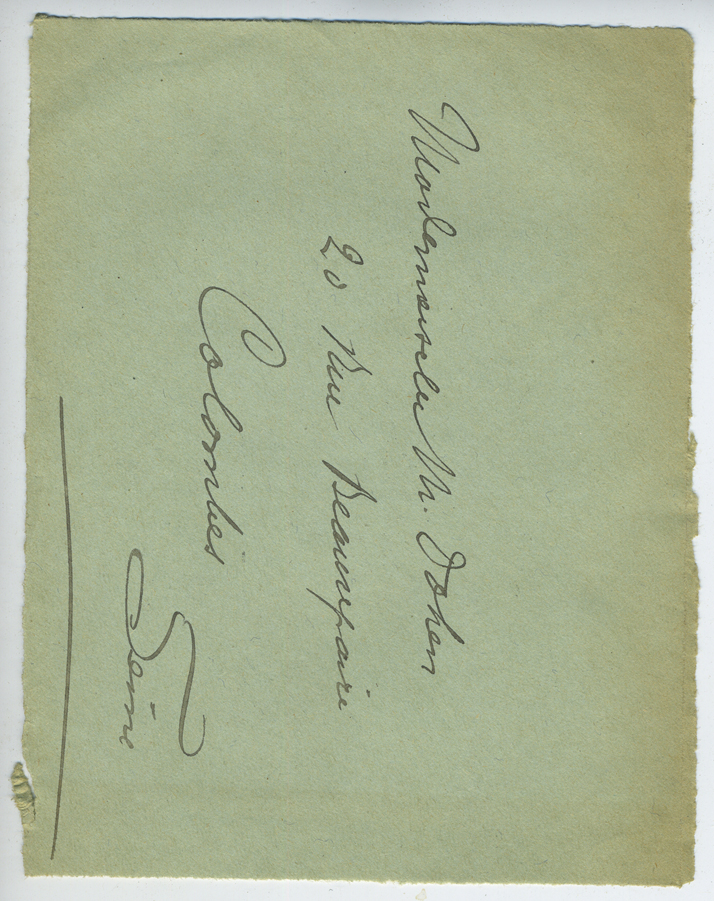 Mademoiselle M. Dohen
20 Rue Beaurepaire
Colombes
Seine